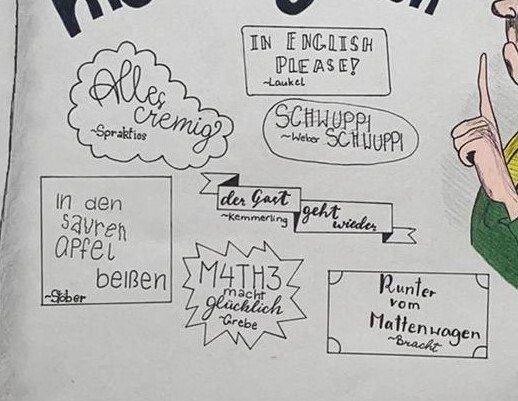 IN ENGLISH
PLEASE!
~Laukel
Alles
cremig?
~Sprakties
SCHWUPPI
~Weber SCHWUPPI
der Gast
~Kemmerling
geht
wieder
in den
sauren
apfel
beißen
~Stöber
M4TH3
macht
glücklich
~Grebe
Runter
vom
Mattenwagen
~Bracht